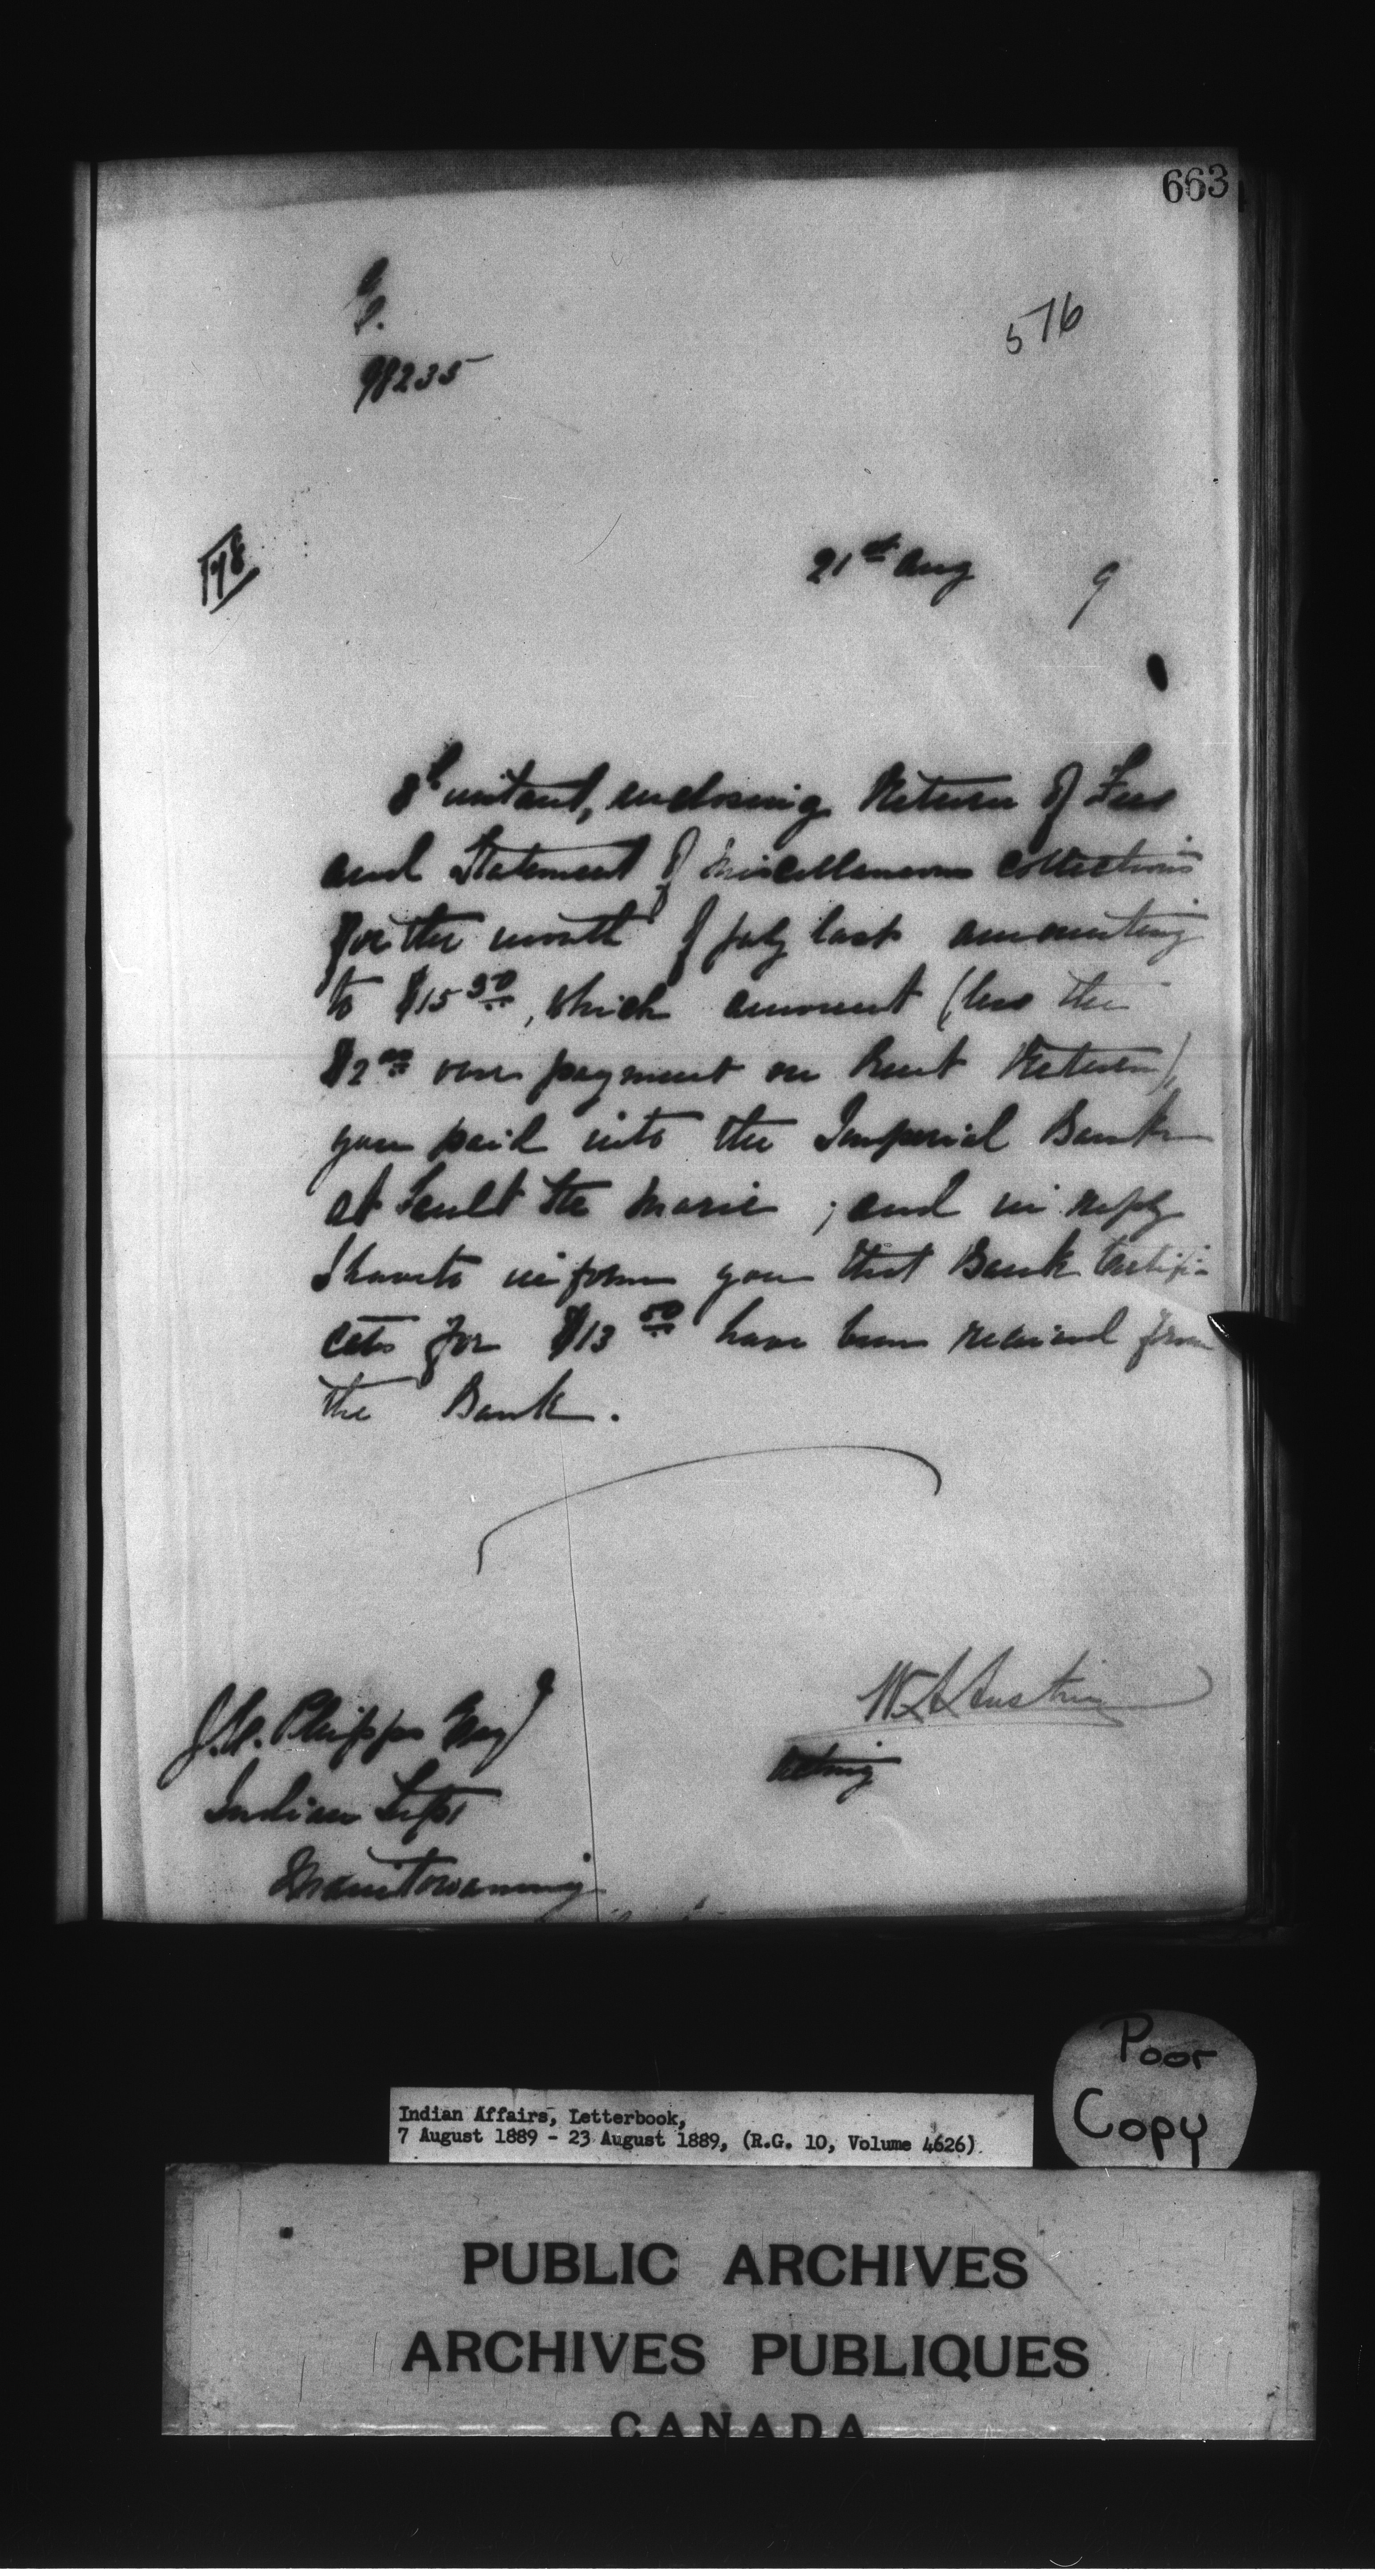 663
G.
98235
576
148
21st Aug 9
8th instant, enclosing Return of Fees
and Statement of Miscellaneous Collections
for the month of July last amounting
to $15.50, which amount (less the
$2.00 over payment on Rent Return),
you paid into the Imperial Bank
at Sault Ste Marie ; and in reply
I have to inform you that Bank Certifi-
cates for $13.50 have been received from
the Bank.
W A Austin
Acting
J.C. Phipps Esq
Indian Supt
Manitowaning
Poor
Copy
Indian Affairs, Letterbook,
7 August 1889 - 23 August 1889, (R.G. 10, Volume 4626)
PUBLIC ARCHIVES
ARCHIVES PUBLIQUES
CANADA